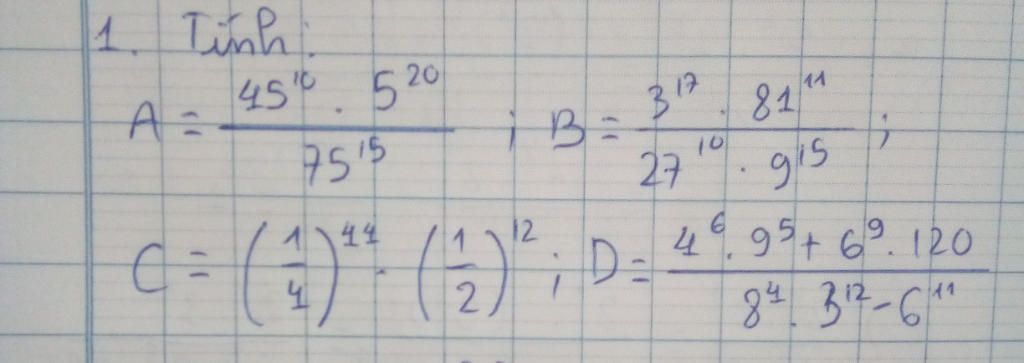 1. Tính:
A = \frac{45^{10} . 5^{20}}{75^{15}} ; B = \frac{3^{17} . 81^{11}}{27^{10} . 9^{15}} ;
C = \left(\frac{1}{4}\right)^{44} . \left(\frac{1}{2}\right)^{12} ; D = \frac{4^6 . 9^5 + 6^9 . 120}{8^4 . 3^{12} - 6^{11}}